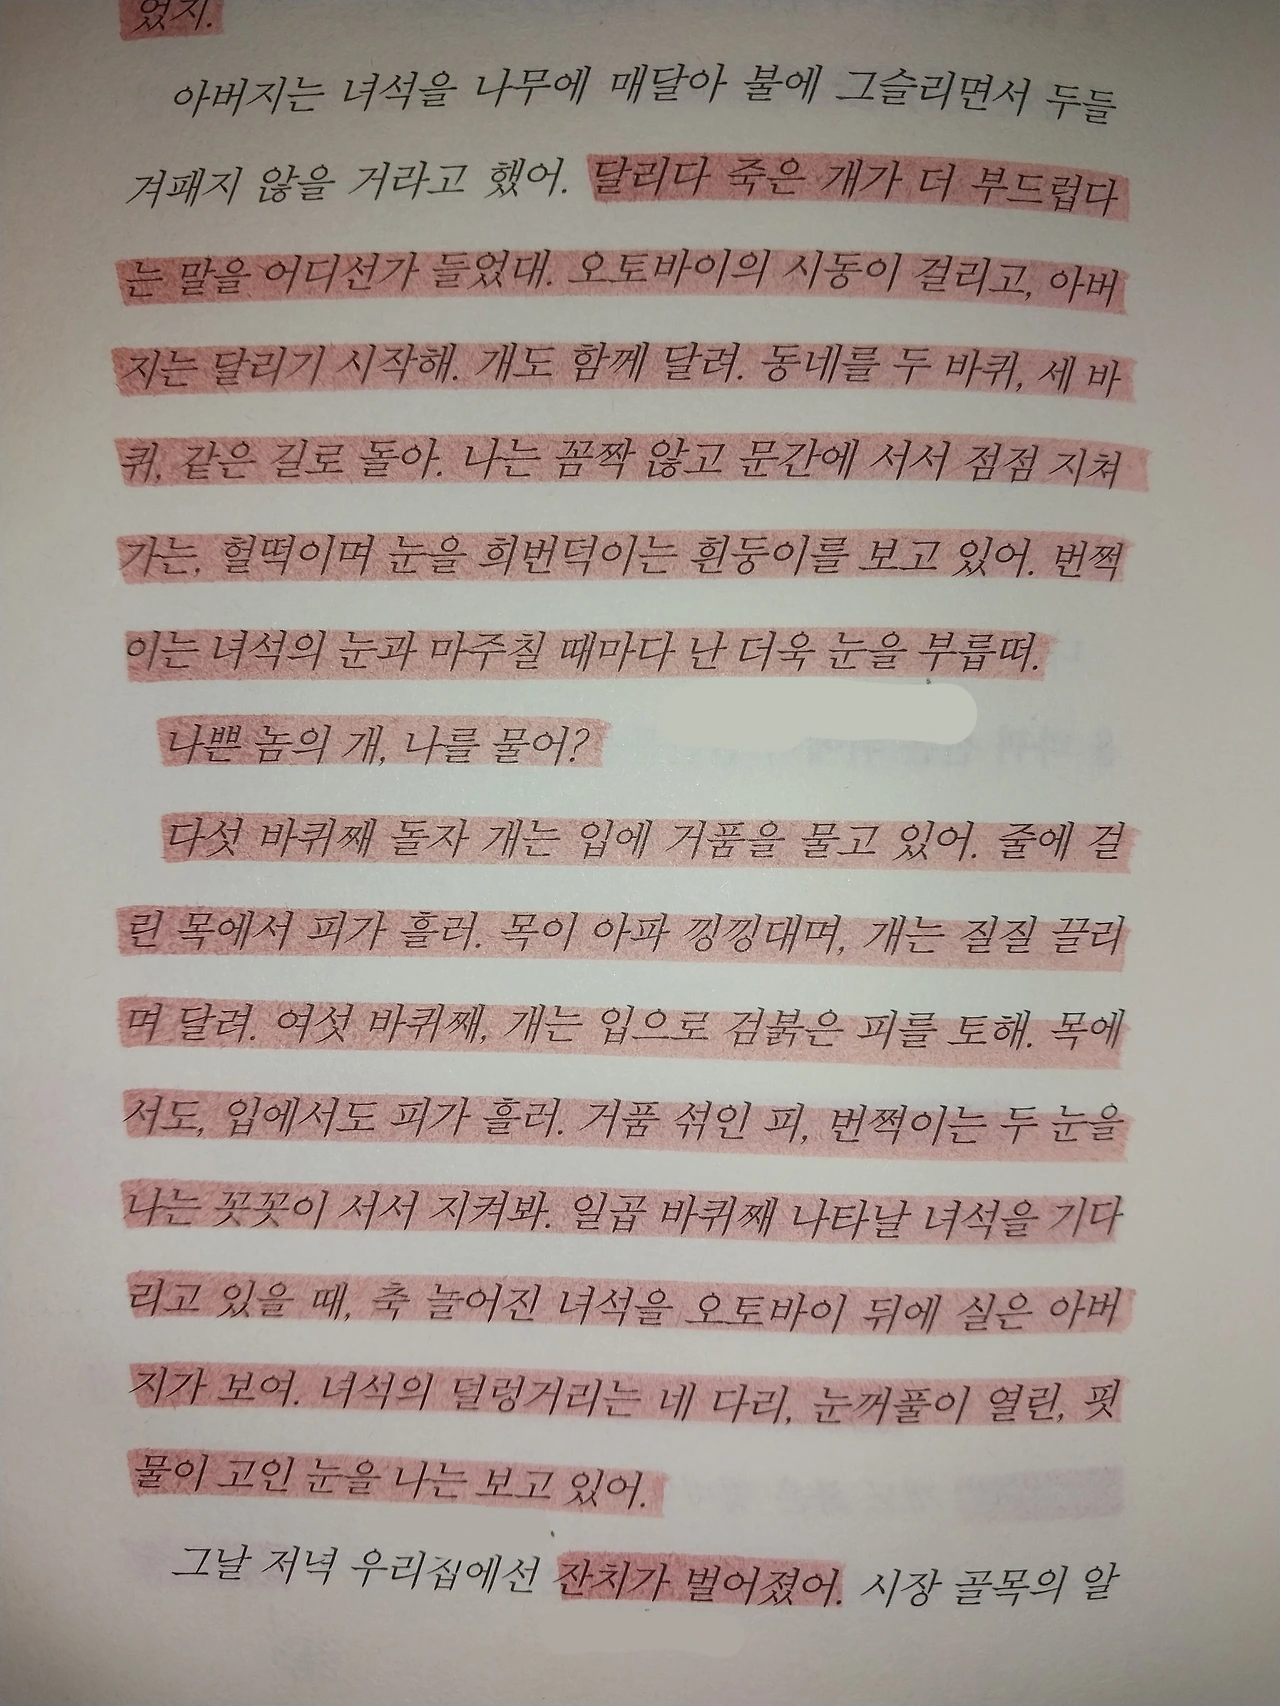 었지.
아버지는 녀석을 나무에 매달아 불에 그슬리면서 두들
겨패지 않을 거라고 했어. 달리다 죽은 개가 더 부드럽다
는 말을 어디선가 들었대. 오토바이의 시동이 걸리고, 아버
지는 달리기 시작해. 개도 함께 달려. 동네를 두 바퀴, 세 바
퀴, 같은 길로 돌아. 나는 꼼짝 않고 문간에 서서 점점 지쳐
가는, 헐떡이며 눈을 희번덕이는 흰둥이를 보고 있어. 번쩍
이는 녀석의 눈과 마주칠 때마다 난 더욱 눈을 부릅떠.
나쁜 놈의 개, 나를 물어?
다섯 바퀴째 돌자 개는 입에 거품을 물고 있어. 줄에 걸
린 목에서 피가 흘러. 목이 아파 낑낑대며, 개는 질질 끌리
며 달려. 여섯 바퀴째, 개는 입으로 검붉은 피를 토해. 목에
서도, 입에서도 피가 흘러. 거품 섞인 피, 번쩍이는 두 눈을
나는 꼿꼿이 서서 지켜봐. 일곱 바퀴째 나타날 녀석을 기다
리고 있을 때, 축 늘어진 녀석을 오토바이 뒤에 실은 아버
지가 보여. 녀석의 덜렁거리는 네 다리, 눈꺼풀이 열린, 핏
물이 고인 눈을 나는 보고 있어.
그날 저녁 우리집에선 잔치가 벌어졌어. 시장 골목의 알